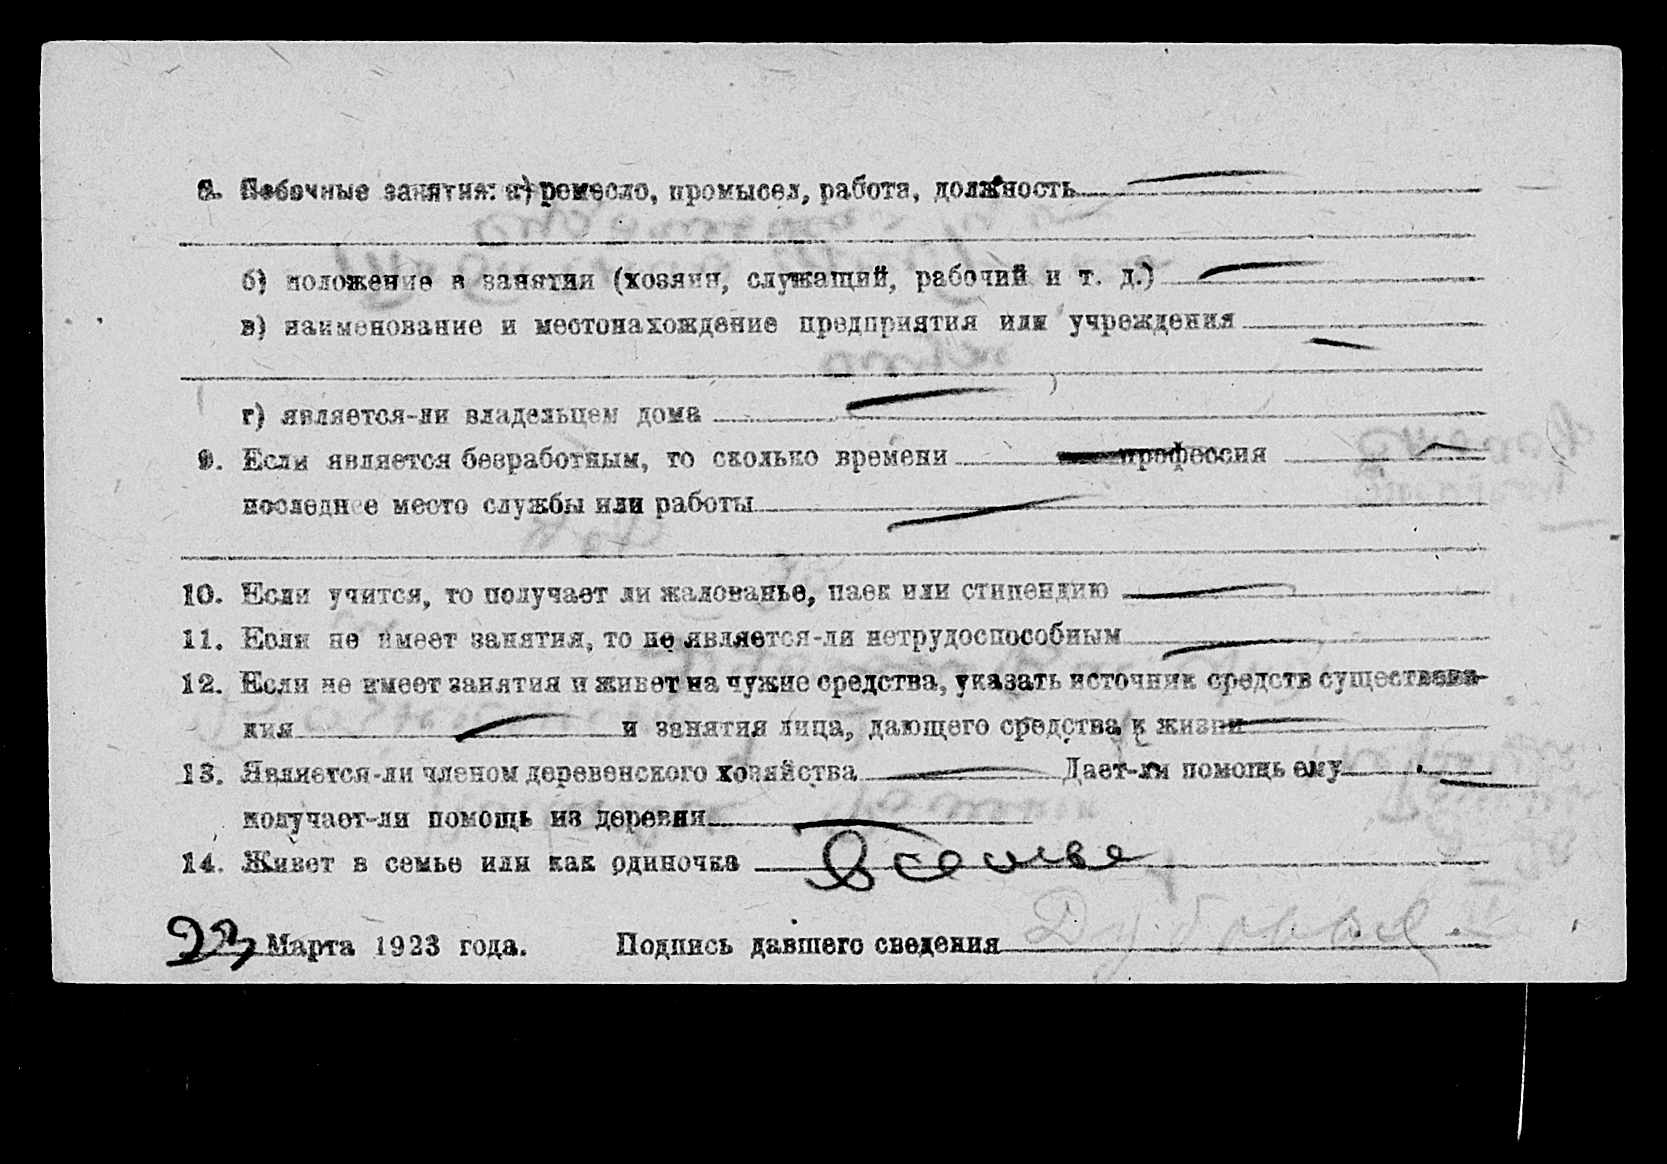 8. Побочные занятия: а) ремесло, промысел, работа, должность
б) положение в занятии (хозяин, служащий, рабочий и т. д.)
в) наименование и местонахождение предприятия или учреждения
г) является-ли владельцем дома
9. Если является безработным, то сколько времени профессия
последнее место службы или работы
10. Если учится, то получает ли жалованье, паек или стипендию
11. Если не имеет занятия, то не является-ли нетрудоспособным
12. Если не имеет занятия и живет на чужие средства, указать источник средств существова-
ния и занятия лица, дающего средства к жизни
13. Является-ли членом деревенского хозяйства Дает-ли помощь ему
получает-ли помощь из деревни
14. Живет в семье или как одиночка В семье
22 Марта 1923 года. Подпись давшего сведения